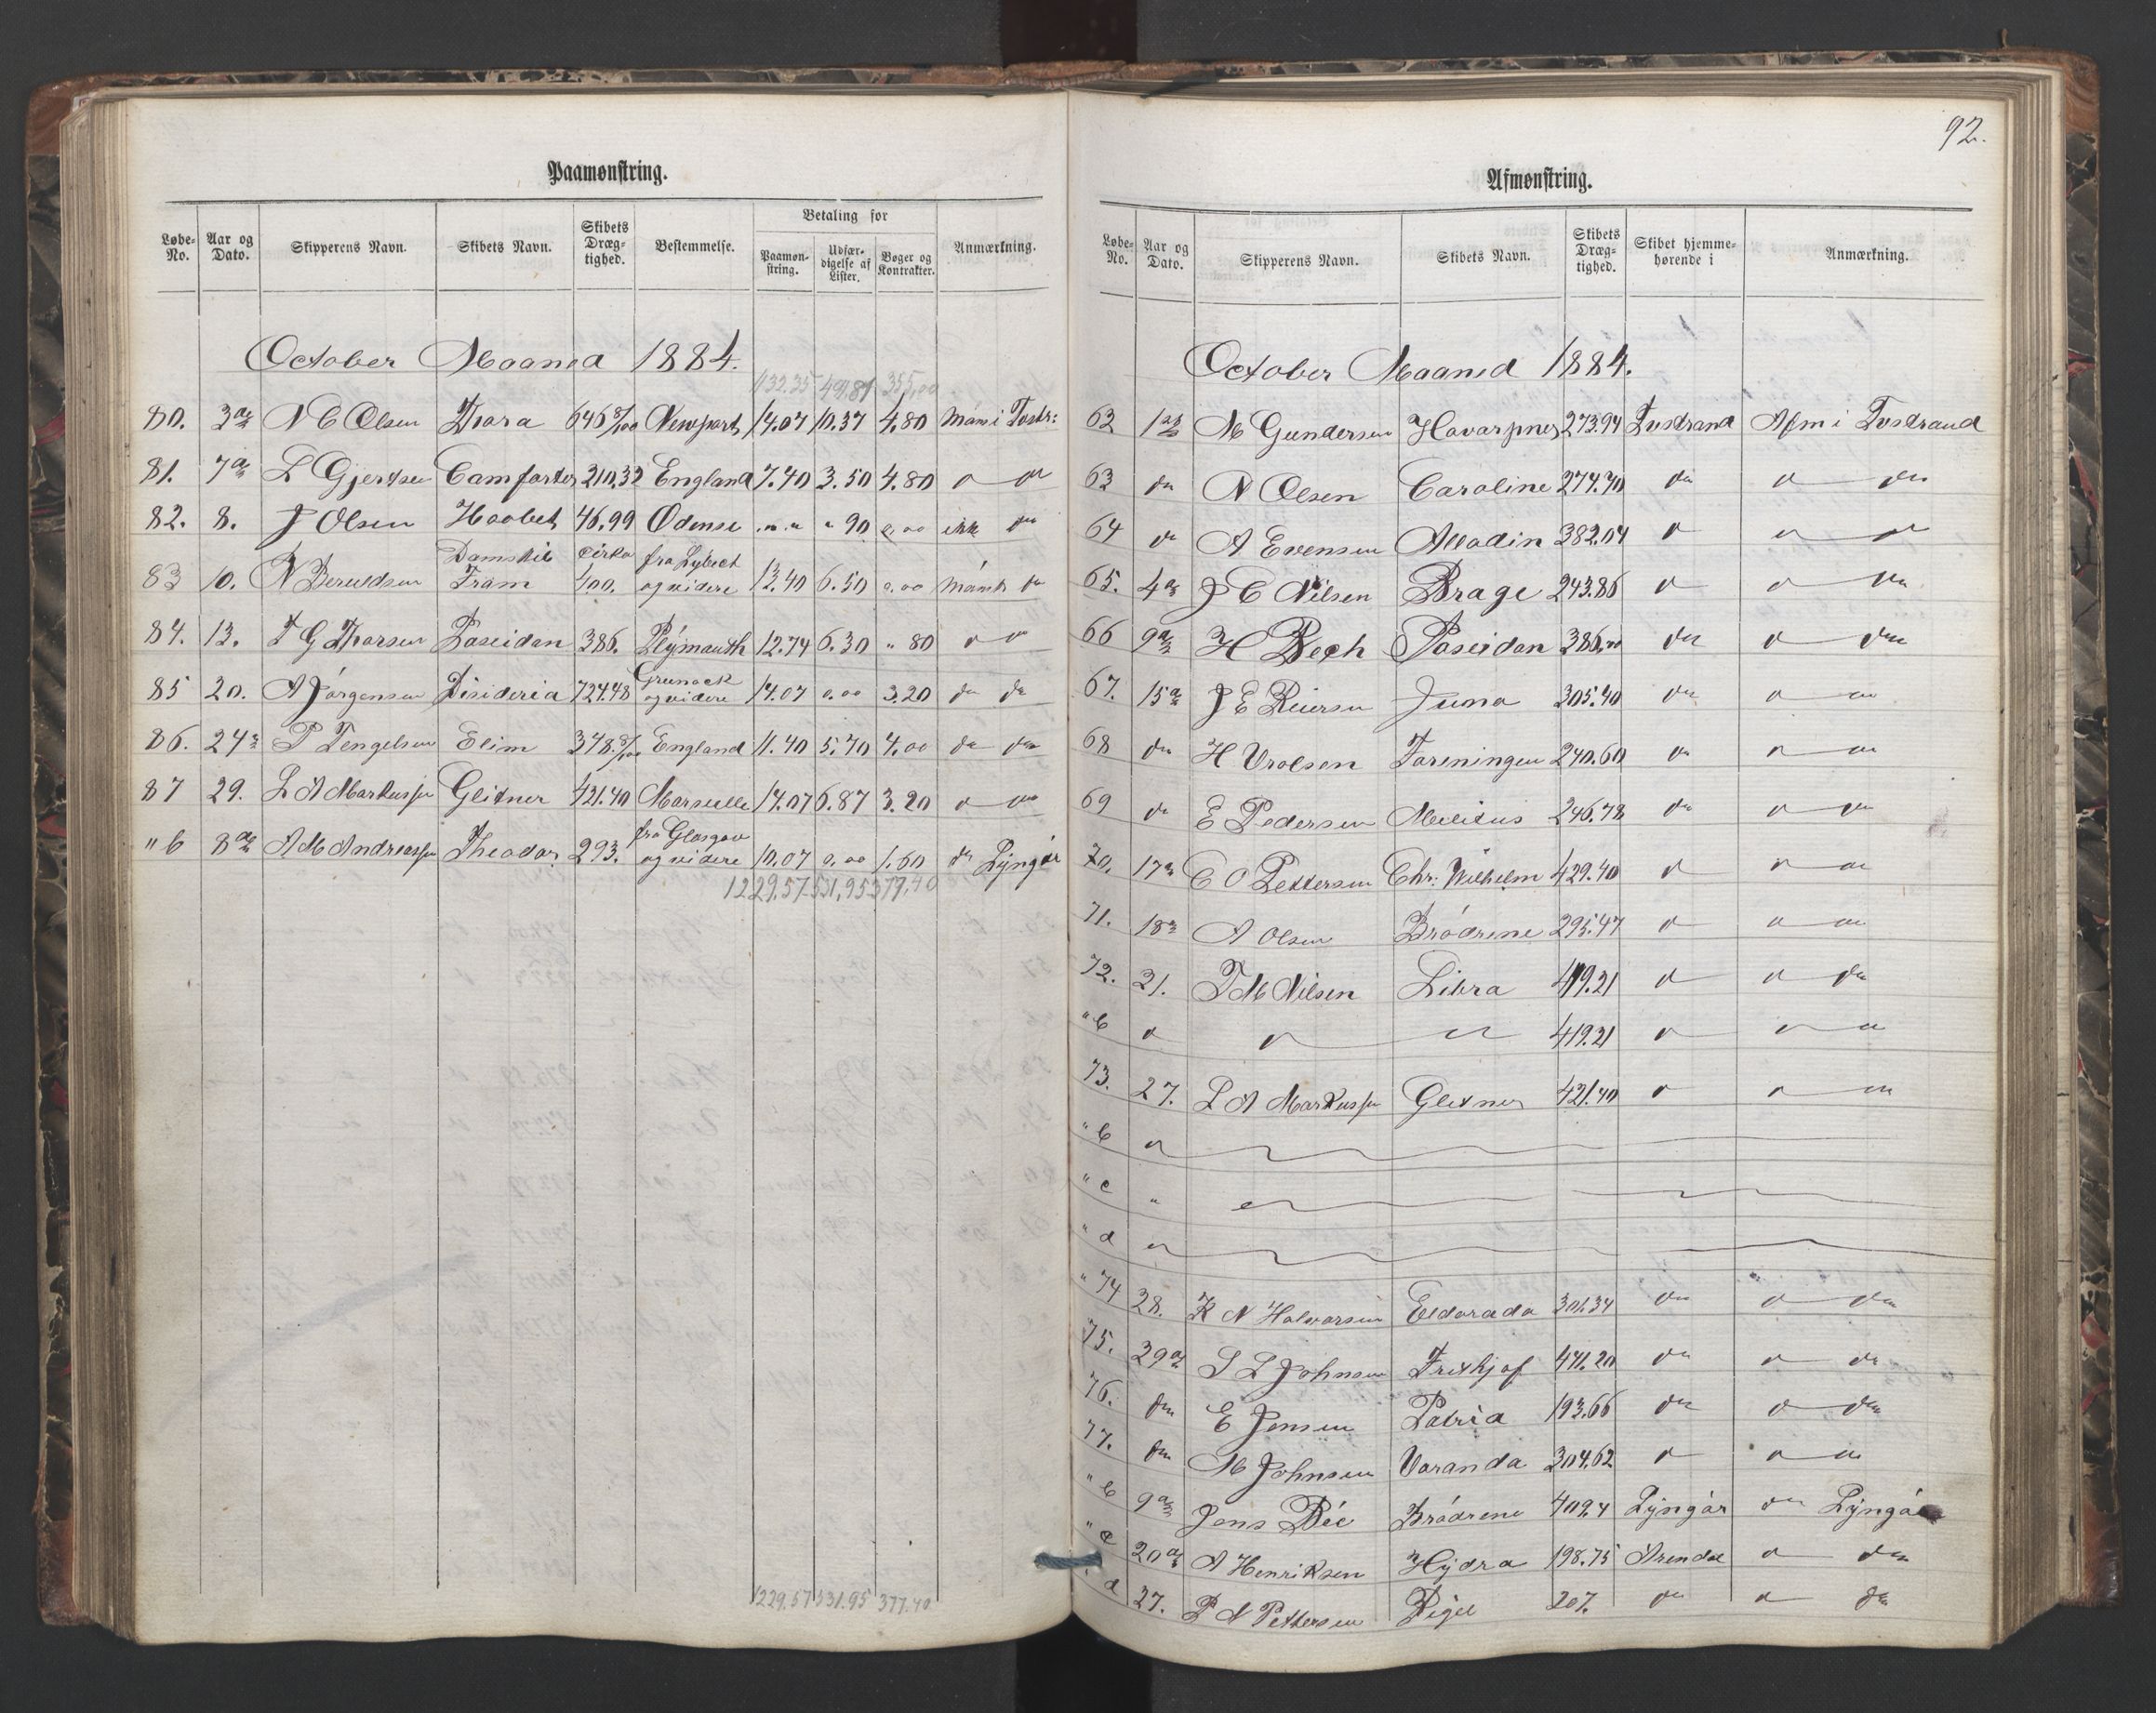 Paamønstring.
Løbe-No. Aar og Dato. Skipperens Navn. Skibets Navn. Skibets Dræg-tighed. Bestemmelse. Betaling for Paamøn-string. Udfær-digelse af Lister. Bøger og Kontrakter. Anmærkning.
October Maaned 1884.
1132.35 491.81 355,00
80. 3 N C Olsen Thora 646 Newport 14.07 10.37 4,80 Mønst i Tvstr:
81. 7 L Gjertsen Comforter 210,32 England 7.40 3.50 4.80
82. 8. J Olsen Haabet 46.99 Odense " 90 0,00 ikk do
Damskib cirka fra Lybeck
83 10. N Beruldsen Fram 400. og videre 13.40 6.50 0,00 do
84. 13. T G Thorsen Poseidon 386. Plÿmouth 12.74 6.30 " 80
Greenock
85 20. A Jørgensen Disideria 724.48 og videre 14.07 0,00 3.20 do do
86. 24 P Tengelsen Elim 348. England 11.40 5.70 4,00 do do
87 29. L A Markussen Gleitner 421.40 Marseille 14.07 6.87 3.20
fra Glasgow
" b 8 A M Andreassen Theodor 293. og videre 10.07 0,00 1.60 do Lÿngør
1229.57 531,95 377,40
1229.57 531.95 377.40
92.
Afmønstring.
Løbe-No. Aar og Dato. Skipperens Navn. Skibets Navn. Skibets Dræg-tighed. Skibet hjemme-hørende i Anmærkning.
October Maaned 1884.
62 1 M Gundersen Havarpnes 273.94 Tvdstrand Afm i Tvdstrand
63 do N Olsen Caroline 274.70 do do
64 do A Evensen Alladin 382.04
65. 4 J C Nilsen Brage 243.86 do
66 9 H Bech Poseidon 386,00 do do
67. 15 J E Reiersen Juno 305.40 do
68 do H Vrolsen Foreningen 240.60 do
69 do E Pedersen Melitus 246.78 do do
70. 17 C O Pettersen Chr: Wilhelm 429.40
71. 18 A Olsen Brødrene 295.47
72. 21. T M Nilsen Libra 419.21 do
" b 419.21
73. 27. L A Markussen Gleitner 421.40
" b
" c "
" d
" 74 28. K N Halvorsen Eldorado 301.34 do do
75. 29 S L Johnsen Frithjof 471.20 do do
76. do E Jensen Patria 193.66 do do
77. do M Johnsen Varanda 304.62
" b 9 Jens Bie Brødrene 409.4 Lÿngør do Lÿngør
" c 20 A Henriksen Hÿdra 198.75 Arendal do
" d 27. P N Pettersen 207. do do